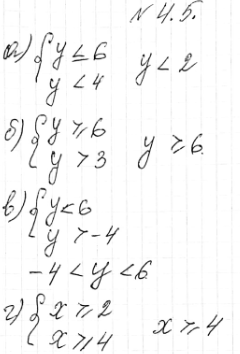 № 4.5.
а) { y ≤ 6
y < 4 y < 2
б) { y ≥ 6
y > 3 y ≥ 6.
в) { y < 6
y > -4
-4 < y < 6
г) { x ≥ 2
x ≥ 4 x ≥ 4